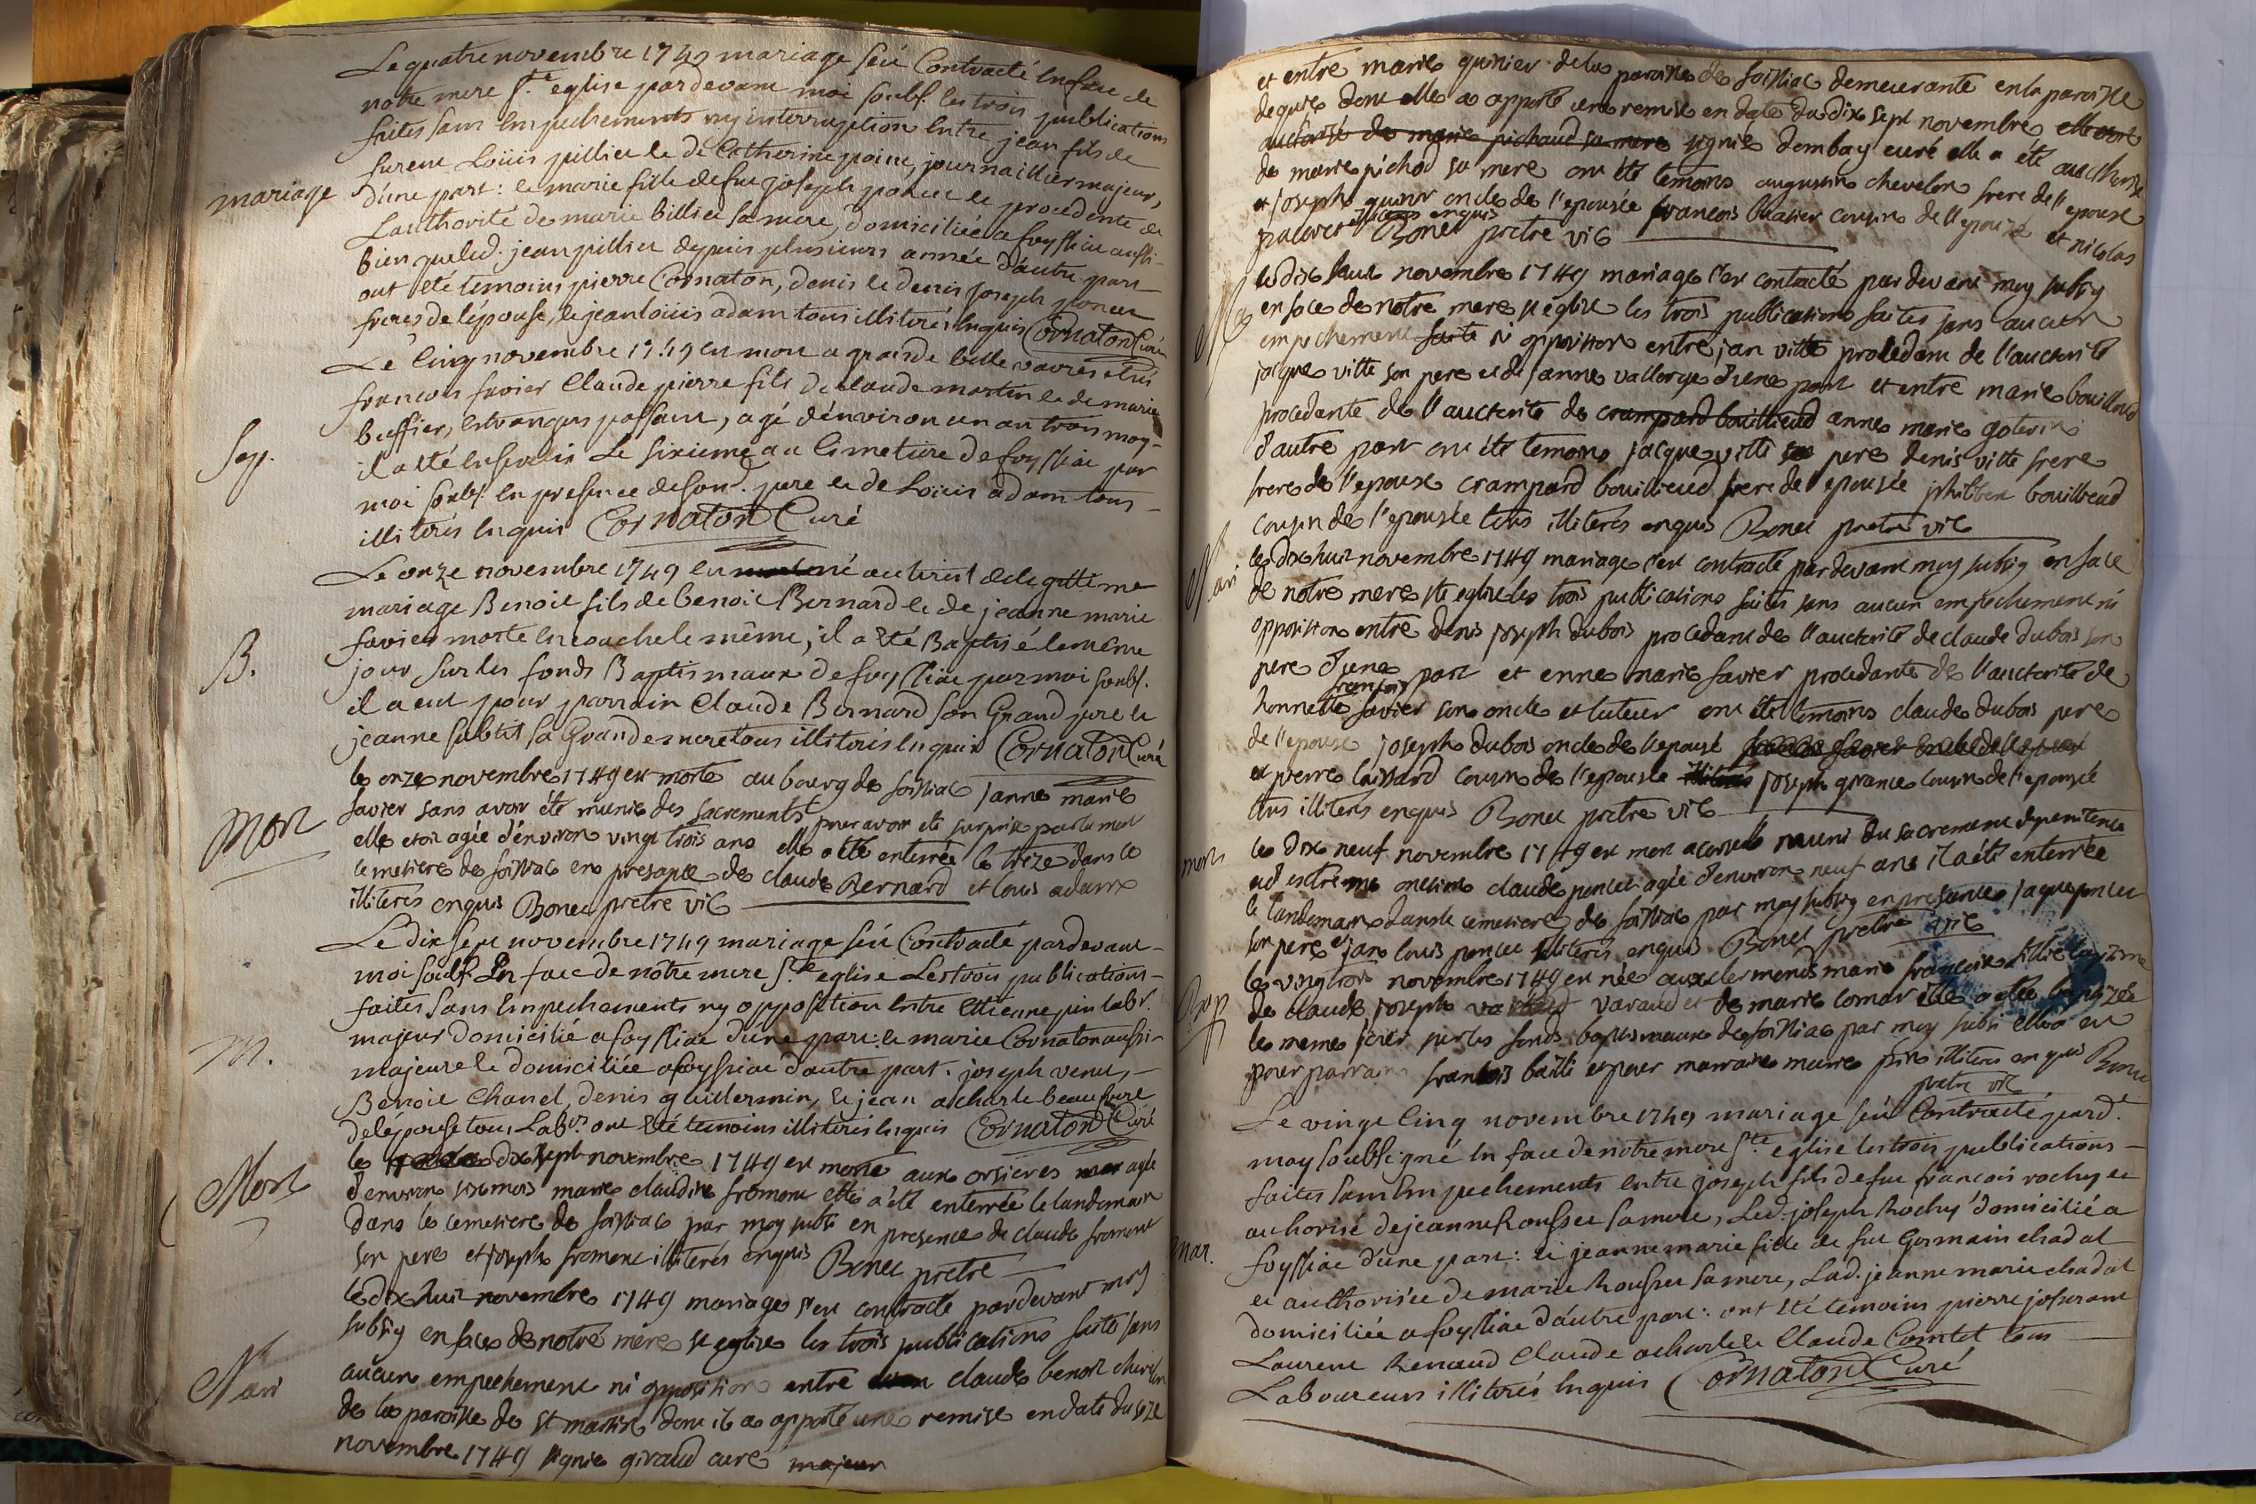 Le quatre novembre 1749 mariage s'éit Contracté En face de
notre mere ste. eglise pardevant moi soubs. les trois publications
faites sans Empechements ny interruption Entre jean fils de
furent Loüis pillier le de Catherine poine, journaillier majeur,
mariage
d'une part: le marie fille de fue joseph poncet le procedente de
Lauthorité de marie billier sa mere, domiciliée a foyssiac aussi-
bien que led. jean pillier depuis plusieurs année d'autre part
ont eté temoins pierre Cornaton, denis le denis joseph poncet
freres de l'épouse, le jean loüis adam tous illiterés Enquis Cornaton Curé
Le Cinq novembre 1749 est mort a grande ville vavres chés
francois favier Claude pierre fils de claude martin le de marie
buffier, Estrangers passant, agé d'environ un an trois moy-
Sep.
il a eté Enseveli Le sixieme au Cimetiere de foyssiac par
moi soubs. En presence de son d. pere le de Loüis adam tous
illiterés Enquis Cornaton Curé
Le onze novembre 1749 est né au tiret de legittime
mariage Benoit fils de benoit Bernard le de jeanne marie
favier morte En couche le même, il a eté Baptisé le même
B.
jour sur les fonds Baptismaux de foyssiac par moi soubs.
il a eut pour parrain Claude Bernard son Grand pere le
jeanne subtil sa Grande mere tous illiterés Enquis Cornaton Curé
le onze novembre 1749 est morte au bourg de foissiac janne marie
favier sans avoir été munie des sacrements pour avoir eté surprise par la mort
Mort
elle etoit agée d'environ vingt trois ans elle a eté enterrée le treize dans le
cemetiere de foissiac en presance de claude Bernard et louis adam
illiteres enquis Bonet pretre vic
Le dix sept novembre 1749 mariage s'éit Contracté pardevant
moi soubs. En face de nôtre mere ste. eglise Les trois publications
faites sans Empechements ny opposition Entre Etienne pin labr.
m.
majeur domicilié a foyssiac d'une part: le marie Cornaton aussi-
majeure le domiciliée a foyssiac d'autre part. joseph venet,
Benoit Chanel, denis guillermin, le jean acharle beaufrere
de l'épouse tous Labrs. ont eté temoins illiterés Enquis Cornaton Curé
le dix sept novembre 1749 est morte aux orsieres agée
Mort
d'environ six mois marie claudine fromont elle a été enterrée le landemain
dans le cemetiere de foissiac par moy subsi en presence de claude fromont
son pere et joseph fromont illiterés enquis Bonet pretre
le dix huit novembre 1749 mariage s'est contracté pardevant moy
subsig en face de notre mere ste eglise les trois publications faites sans
Mari
aucun empechement ni opposition entre claude benoit chevelon
de la paroisse de st martin dont il a apporté une remise en date du seize
novembre 1749 signée giraud curé majeur
et entre marie gunier de la paroisse de foissiac demeurante en la paroisse
de cure dont elle a apporté une remise en date du dix sept novembre elle etant
aucthorisé de marie pichaud sa mere signée dombay curé elle a été aucthorisé
de marie pichod sa mere ont été temoins augustin chevelon frere de l'epoux
et joseph gunier oncle de l'epousée francois cousin de l'epousé et nicolas
illiteres enquis Bonet pretre vic
le dix huit novembre 1749 mariage s'est contracté par devant moy subsig
en face de notre mere ste église les trois publications faites sans aucun
empechement faite ni opposition entre jan vitte procedant de l'aucthorité
jacque vitte son pere et de janne vallorge d'une part et entre marie bouilloud
procedante de l'aucthorité de crampard bouillioud anne marie goterin
d'autre part ont été temoins jacque vitte son pere denis vitte frere
frere de l'epoux crampard bouillioud frere de l'epousée philibert bouillioud
cousin de l'epousée tous illiterés enquis Bonet pretre vic
Mari
le dix huit novembre 1749 mariage s'est contracté pardevant moy subsig en face
de notre mere ste eglise les trois publications faites sans aucun empechement ni
opposition entre denis joseph dubois procedant de l'aucthorité de claude dubois son
pere d'une part et enne marie favier procedante de l'aucthorité de
honneste francois favier son oncle et tuteur ont été temoins claude dubois pere
de l'epoux joseph dubois oncle de l'epoux francois favier oncle de l'epousée
et pierre cuissard cousin de l'epousée illiteres joseph girance cousin de l'epousée
tous illiterés enquis Bonet pretre vic
mort
le dix neuf novembre 1749 est mort a cornele muni du sacrement de penitence
et d'extreme onction claude poncet agée d'environ neuf ans il a été enterrée
le landemain dans le cemetiere de foissiac par moy subsig en presance jaque poncet
son pere et jan louis poncet illiterés enquis Bonet pretre vic
Bap
le vingt trois novembre 1749 est née aux clermonds marie francoise fillie legitime
de claude joseph varaud et de marie cornar elle a etée baptizée
le meme jour sur les fonds baptismaux de foissiac par moy subsi elle a eu
pour parrain francois bailli et pour marraine marie pin illiteres enquis Bonet
pretre vic
Le vingt Cinq novembre 1749 mariage s'éit Contracté pard.t
moy soubsigné En face de notre mere ste. eglise les trois publications
faites sans Empechements Entre joseph fils de fue francois rochy et
authorisé de jeanne Rousset sa mere, Led. joseph Rochy domicilié a
mar.
foyssiac d'une part: le jeanne marie fille de fut Germain chadal
et authorisée de marie Rousset sa mere, Lad. jeanne marie chadal
domiciliée a foyssiac d'autre part: ont eté temoins pierre josserand
Laurent Renaud Claude acharle le Claude Comtet tous
Laboureurs illiterés Enquis Cornaton Curé